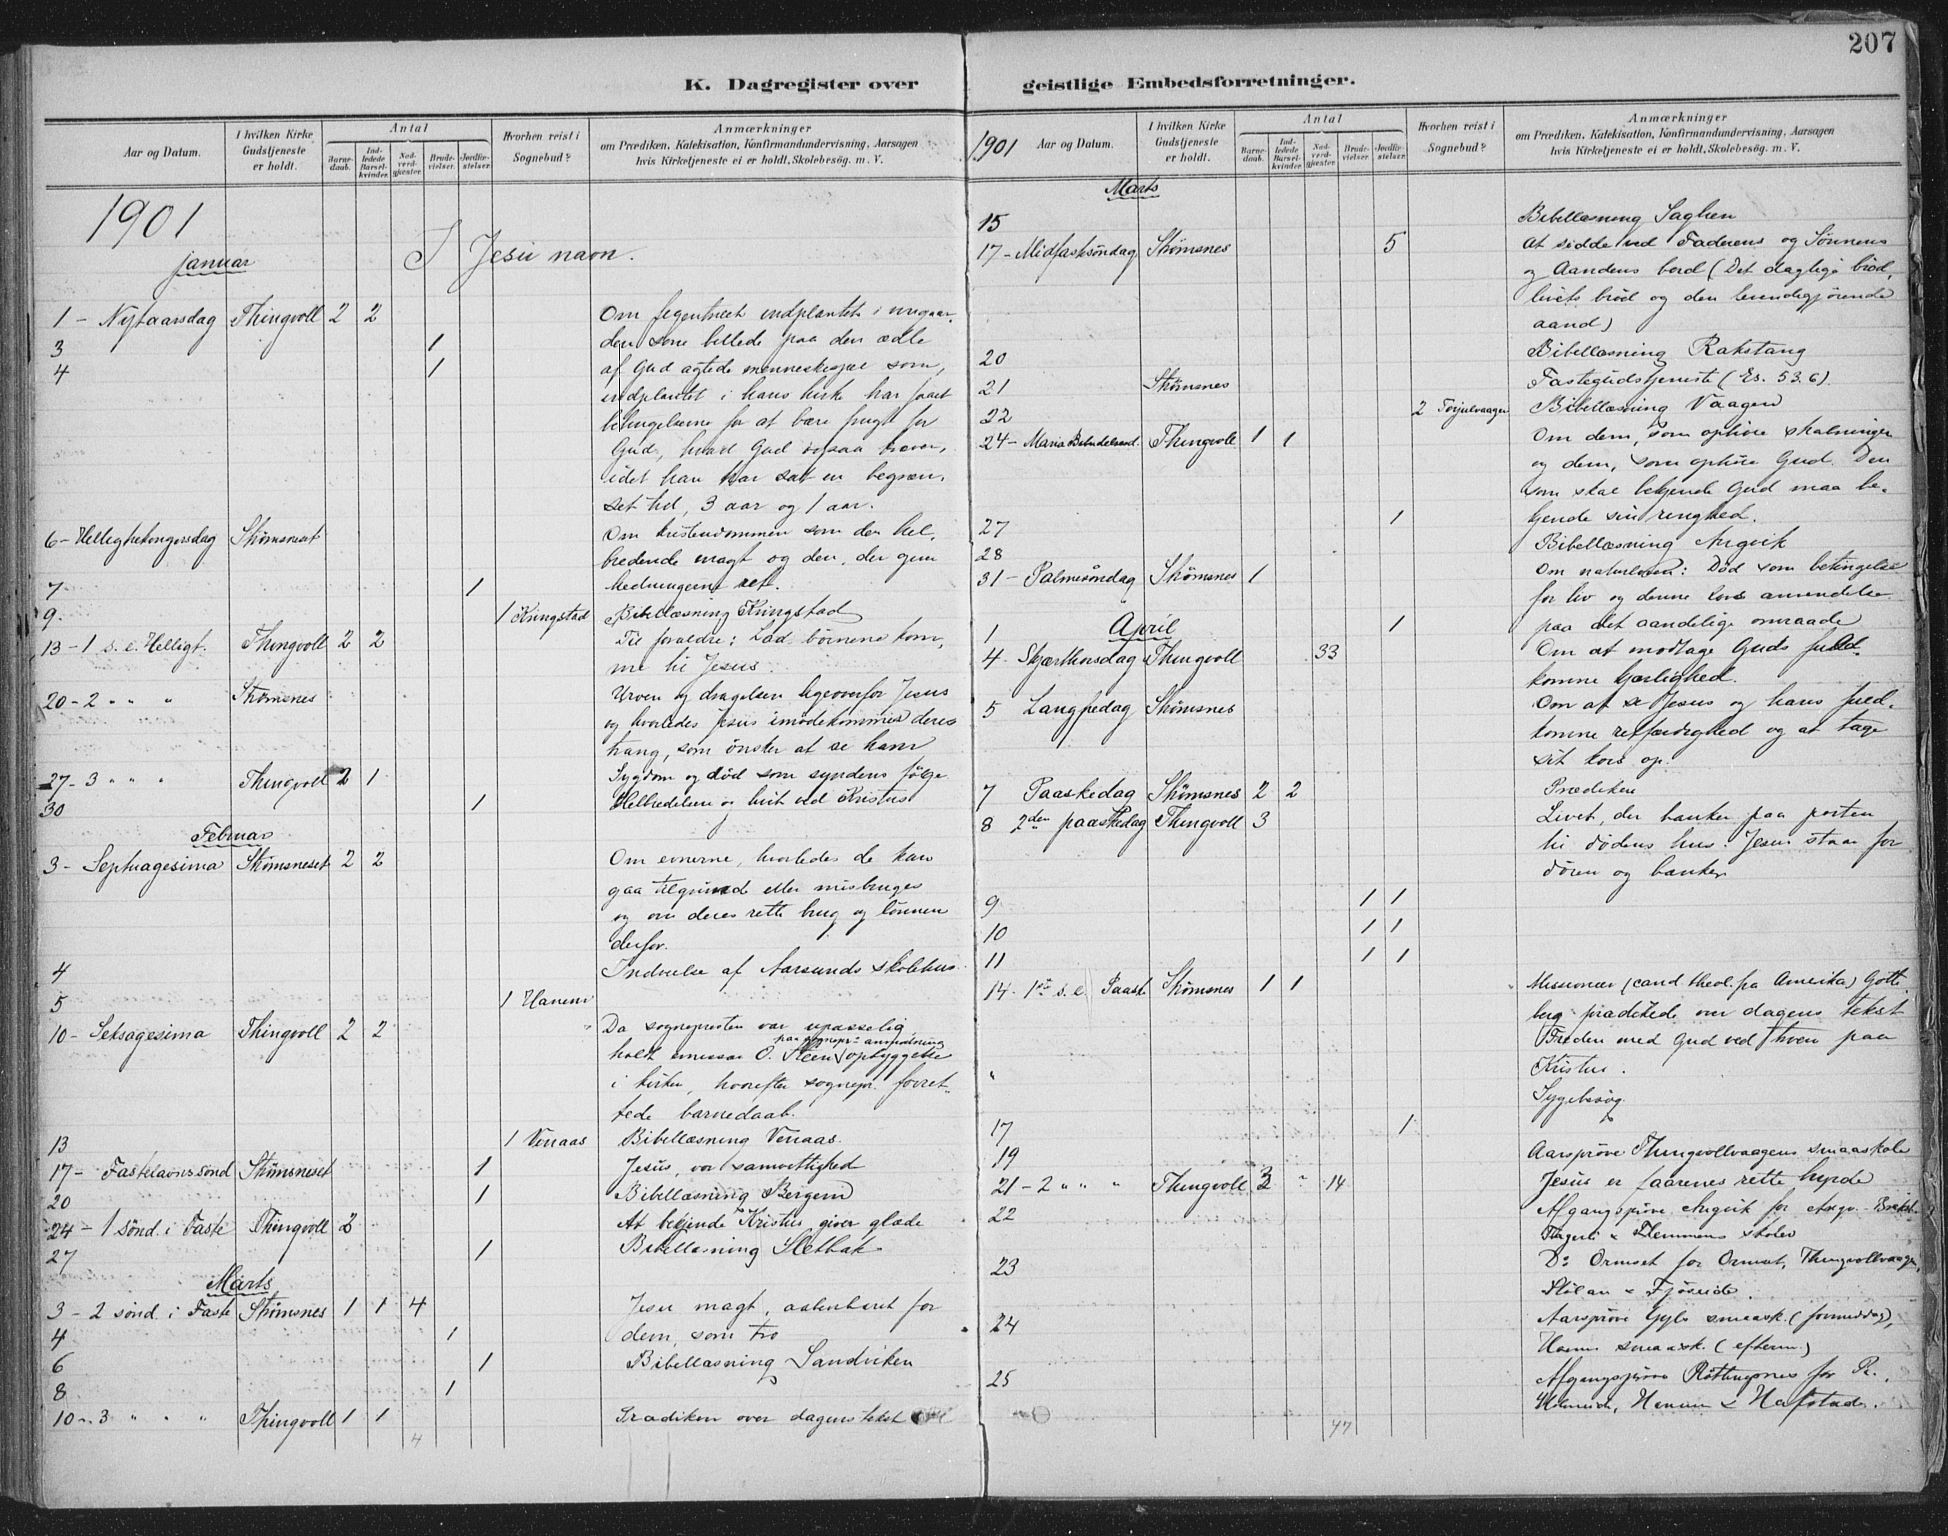 207
K. Dagregister over geistlige Embedsforretninger.
Aar og Datum.
I hvilken Kirke Gudstjeneste er holdt.
Antal
Barnedaab.
Indledede Barselkvinder.
Nadverdgjester.
Brudevielser.
Jordfæstelser.
Hvorhen reist i Sognebud?
Anmærkninger
om Prædiken, Katekisation, Konfirmandundervisning, Aarsagen
hvis Kirketjeneste ei er holdt, Skolebesøg. m. V.
1901
I Jesu navn.
Januar
1 - Nytaarsdag Thingvoll 2 2 Om figentræet indplantet i vingaar-
3 1 den som billede paa den ædle
4 1 af Gud agtede menneskesjæl som,
indplantet i hans kirke har faaet
betingelserne for at bære frugt for
Gud, hvad Gud ogsaa kræver,
idet han har sat en begræn-
set tid, 3 aar og 1 aar.
6 - Helligtrekongersdag Strømsneset Om kristendommen som den hel-
bredende magt og den, der gjen
7 1 hedningerne ret.
9. 1 Kringstad Bibellæsning Kringstad
13 - 1 s. e. Helligt. Thingvoll 2 2 Til forældre: Lad børnene kom-
me til Jesus
20 - 2 " " " Strømsnes Urven og dragelsen ligeoverfor Jesus
og hvorledes Jesus imødekommer deres
trang, som ønsker at se ham
27 - 3 " " " Thingvoll 2 1 Sygdom og død som syndens følge
30 1 Helbredelsen og livet ved Kristus
Februar
3 - Septuagesima Strømsneset 2 2 Om evnerne, hvorledes de kan
gaa tilgrunde eller misbruges
og om deres rette brug og lønnen
derfor.
4 Indvielse af Aarsunds skolehus
5 1 Hanem
10 - Seksagesima Thingvoll 2 2 Da sognepresten var upasselig,
paa sognepr. anmodning
holdt emissær O. Steen opbyggelse
i kirken, hvorefter sognepr. forret-
tede barnedaab.
13 1 Venaas Bibellæsning Venaas.
17 - Fastelavnssønd Strømsneset 1 Jesus, vor samvittighed
20 1 Bibellæsning Bergem
24 - 1 sønd. i Faste Thingvoll 2 At bekjende Kristus, giver glæde
27 1 Bibellæsning Sletbak
Marts
3 - 2 sønd. i Faste Strømsnes 1 1 4 Jesu magt, aabenbaret for
4 1 dem, som tro
6 1 Bibellæsning Sandviken
8 1
10 - 3 " " " Thingvoll 1 1 Prædiken over dagens tekst
4
1901
Aar og Datum.
I hvilken Kirke Gudstjeneste er holdt.
Antal
Barnedaab.
Indledede Barselkvinder.
Nadverdgjester.
Brudevielser.
Jordfæstelser.
Hvorhen reist i Sognebud?
Anmærkninger
om Prædiken, Katekisation, Konfirmandundervisning, Aarsagen
hvis Kirketjeneste ei er holdt, Skolebesøg. m. V.
Marts
15 Bibellæsning Saghen
17 - Midfastsøndag Strømsnes 5 At sidde ved Faderens og Sønnens
og Aandens bord (Det daglige brød,
livets brød og den levendegjørende
aand)
20 Bibellæsning Rakstang
21 Strømsnes Fastegudstjeneste (Es. 53.6)
22 2 Torjulvaagen Bibellæsning Vaagen
24 - Maria Bebudelsesd. Thingvoll 1 1 Om dem, som ophøie skabninger
og dem, som ophøie Gud. Den
som skal bekjende Gud maa be-
27 1 kjende sin ringhed.
28 Bibellæsning Angvik
31 - Palmesøndag Strømsnes 1 Om naturloven: Død som betingelse
for liv og denne lovs anvendelse
April
1 1 paa det aandelige omraade
4 Skjærthorsdag Thingvoll 33 Om at modtage Guds fuld-
komne kjærlighed.
5 Langfredag Strømsnes Om at se Jesus og hans fuld-
komne retfærdighed og at tage
sit kors op.
7 Paaskedag Strømsnes 2 2 Prædiken
8 2den paaskedag Thingvoll 3 Livet, der banker paa porten
til dødens hus. Jesus staar for
døren og banker
9 1 1
10 1 1
11 1 1
14 - 1ste s. e. Paaske Strømsnes 1 1 Missionær (cand. theol. fra Amerika) Gott-
berg prædikede over dagens tekst
Freden med Gud ved troen paa
" Kristus.
Sygebesøg.
17 1
19 Aarsprøve Thingvollvaagens smaaskole
21 - 2 " " " Thingvoll 3 " 14 Jesus er faarenes rette hyrde
22 Afgangsprøve Angvik for Angv.
Flemmens skoler
23 Do Ormset for Ormset, Thingvollvaagen,
Stølan & Fjøseide.
24 Aarsprøve Gyls smaask. (formiddag),
smaask. (efterm.)
25 Afgangsprøve Røttingsnes for R.,
Holmeide, Hanem & Hafstad.
47